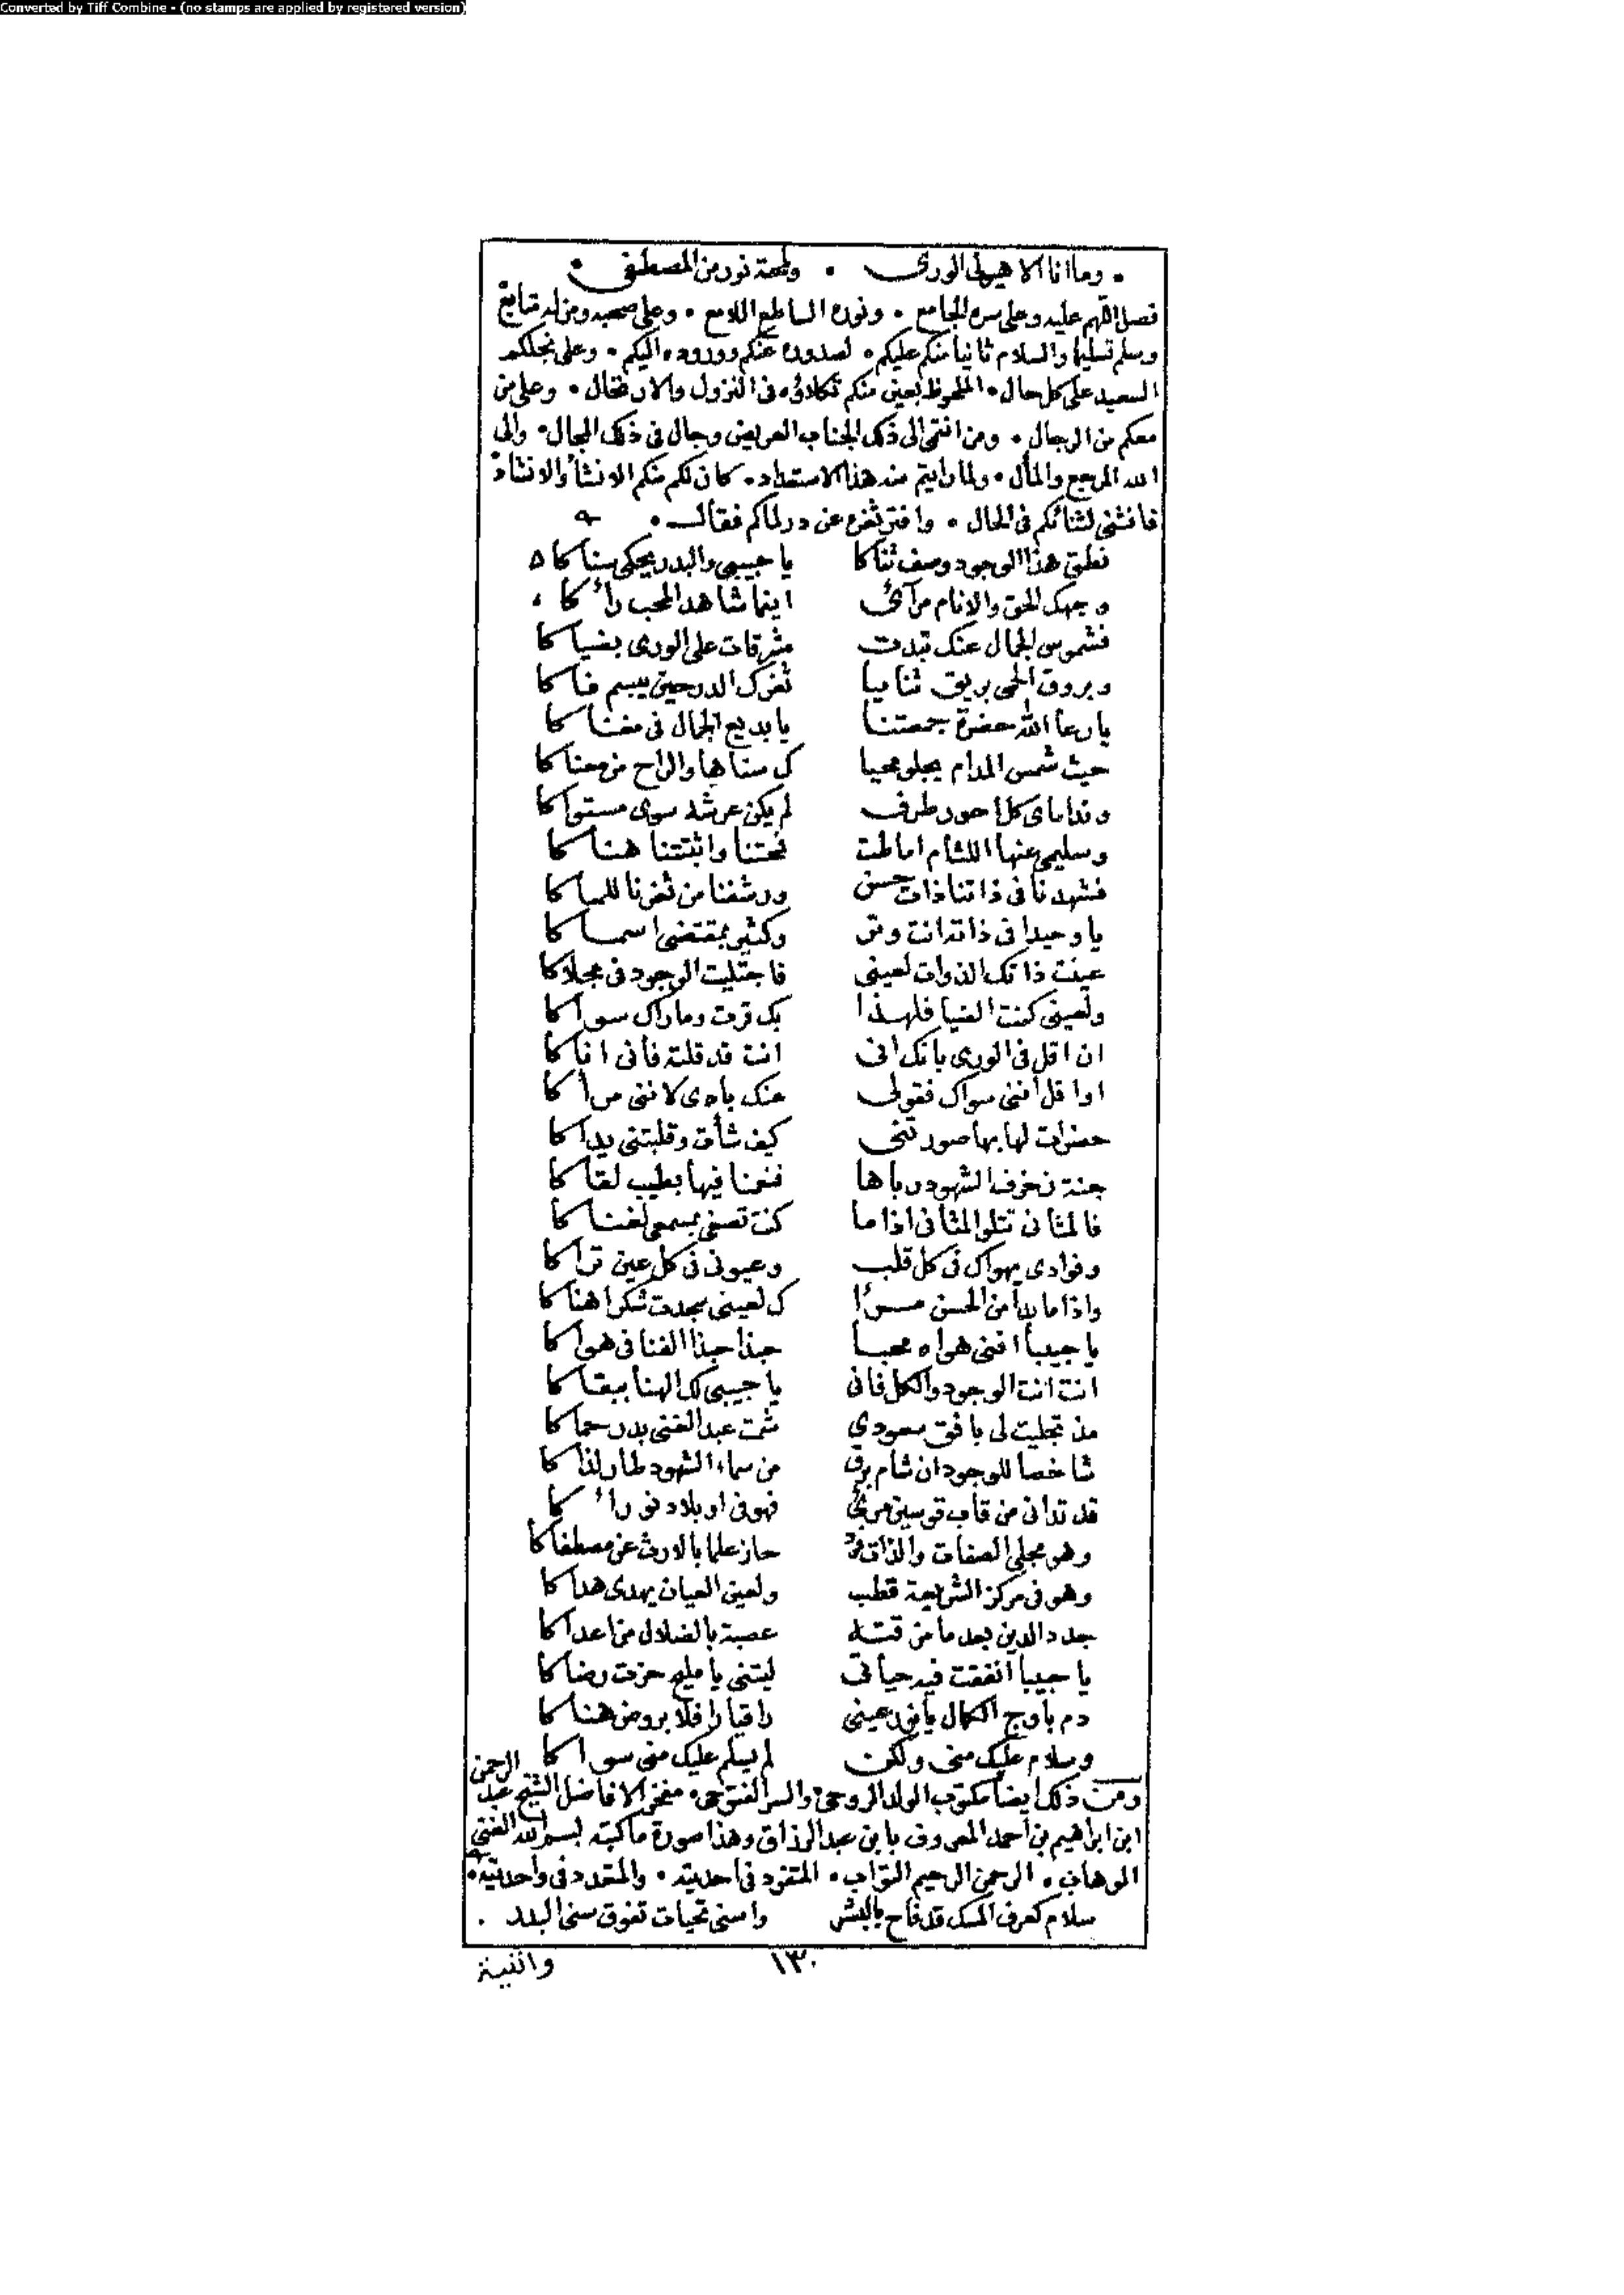 Converted by Tiff Combine - (no stamps are applied by registered version)
• وما انا الا هيولى الورى • ولمحة نور من المصطفى •
فصل اللهم عليه وعلى سره الجامع • ونوره الساطع اللامع • وعلى صحبه ومن له متابع
وسلم تسليما والسلام ثانيا منكم عليكم • لصدوره عنكم ووروده اليكم • وعلى نجلكم
السعيد على كل حال • الملحوظ بعين منكم تكلاؤه في النزول والارتحال • وعلى من
معكم من الرجال • ومن انتمى الى ذلك الجناب العريض وجال في ذلك المجال • والى
الله المرجع والمأل • ولما رايتم منه هذا الاستعداد • كان لكم منكم الانشأ والانشاد
فانثنى لثنائكم في الحال • وافتر ثغره عن در لماكم فقال •
نطق هذا الوجود وصف ثناكا يا حبيبي والبدر يحكي سناكا
وجهك الحق والانام مرآئي اينما شاهد المحب رأكا
فشموس الجمال عنك تبدت مشرقات على الورى بضياكا
وبروق الحمى بريق ثنايا ثغرك الدر حين يبسم فاكا
يا رعا الله حضرة جمعتنا يا بديع الجمال في مغناكا
حيث شمس المدام يجلو محيا ك سناها والراح من معناكا
ونداماي كل احور طرف لم يكن عرشه سوى مستواكا
وسليمى عنها اللثام اماطت فمحتنا واثبتتنا هناكا
فشهدنا في ذاتنا ذات حسن ورشفنا من ثغرنا للماكا
يا وحيدا في ذاته انت وتر وكثير بمقتضى اسماكا
عينت ذاتك الذوات لعيني فاجتليت الوجود في مجلاكا
ولعيني كنت الضيا فلهذا بك قرت وما رأك سواكا
ان اقل في الورى بانك اني انت قد قلته فاني اناكا
اوا قل انني سواك فقولي عنك بادي لانني مرأكا
حضرات لها بها صورتني كيف شأت وقلبتني يداكا
جنة زخرف الشهود رباها فنعمنا فيها بطيب لقاكا
فالمثاني تتلو المثاني اذا ما كنت تصغي بسمعي لغناكا
وفوادي يهواك في كل قلب وعيوني في كل عين تراكا
واذا ما بدأ من الحسن مرأ ك لعيني سجدت شكرا هناكا
يا حبيبا افنى هواه محبا حبذا حبذا الفنا في هواكا
انت انت الوجود والكل فاني يا حبيبي لك الهنأ ببقاكا
مذ تجليت لي بافق سعودي شمت عبد الغني بدر حماكا
شاخصا للوجود ان شام برق من سماء الشهود طار لذاكا
قد تدانى من قاب قوسين مرئي فهو في او بلاد نو رأكا
وهو مجلى الصفات والذات فرد حاز علما بالارث عن مصطفاكا
وهو في مركز الشريعة قطب ولعين العيان يهدي هداكا
جدد الدين بعد ما من قتله عصبة بالضلال من اعداكا
يا حبيبا انفقت فيه حياتي ليتني يا مليح حزت رضاكا
دم باوج الكمال يا نور عيني راقيا رافلا بروض هناكا
وسلام عليك مني ولكن لم يسلم عليك مني سواكا
ومن ذلك ايضا مكتوب الولد الروحي والسر الفتوحي • مفخر الافاضل الشيخ عبد الرحمن
ابن ابراهيم بن احمد المعروف بابن عبد الرزاق وهذا صورة ما كتبه بسم الله الغني
الوهاب • الرحمن الرحيم التواب • المتفرد في احديته • والمتعدد في واحديته •
سلام كعرف المسك قد فاح بالبشر واسنى تحيات تفوق سنى البدر •
١٣٠
واثنية